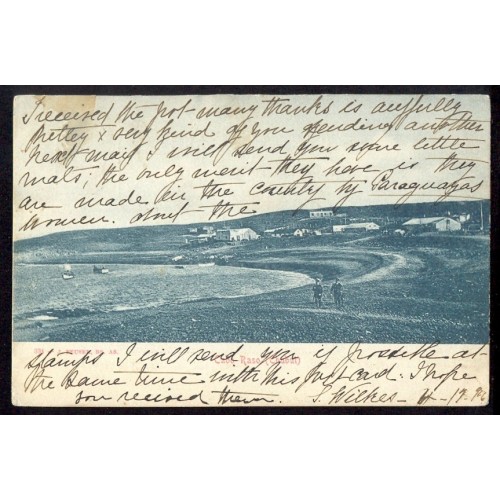 I received the pot - many thanks is awfully
pretty & very kind of you sending another
next may I will send you some little
mats; the only merit they have is they
are made in the country by Paraguayas
Women. about the
Cabo Raso (Chubut)
stamps I will send you if possible at
the same time with this post card. I hope
you received them. S. Wilkes - 4 - 19